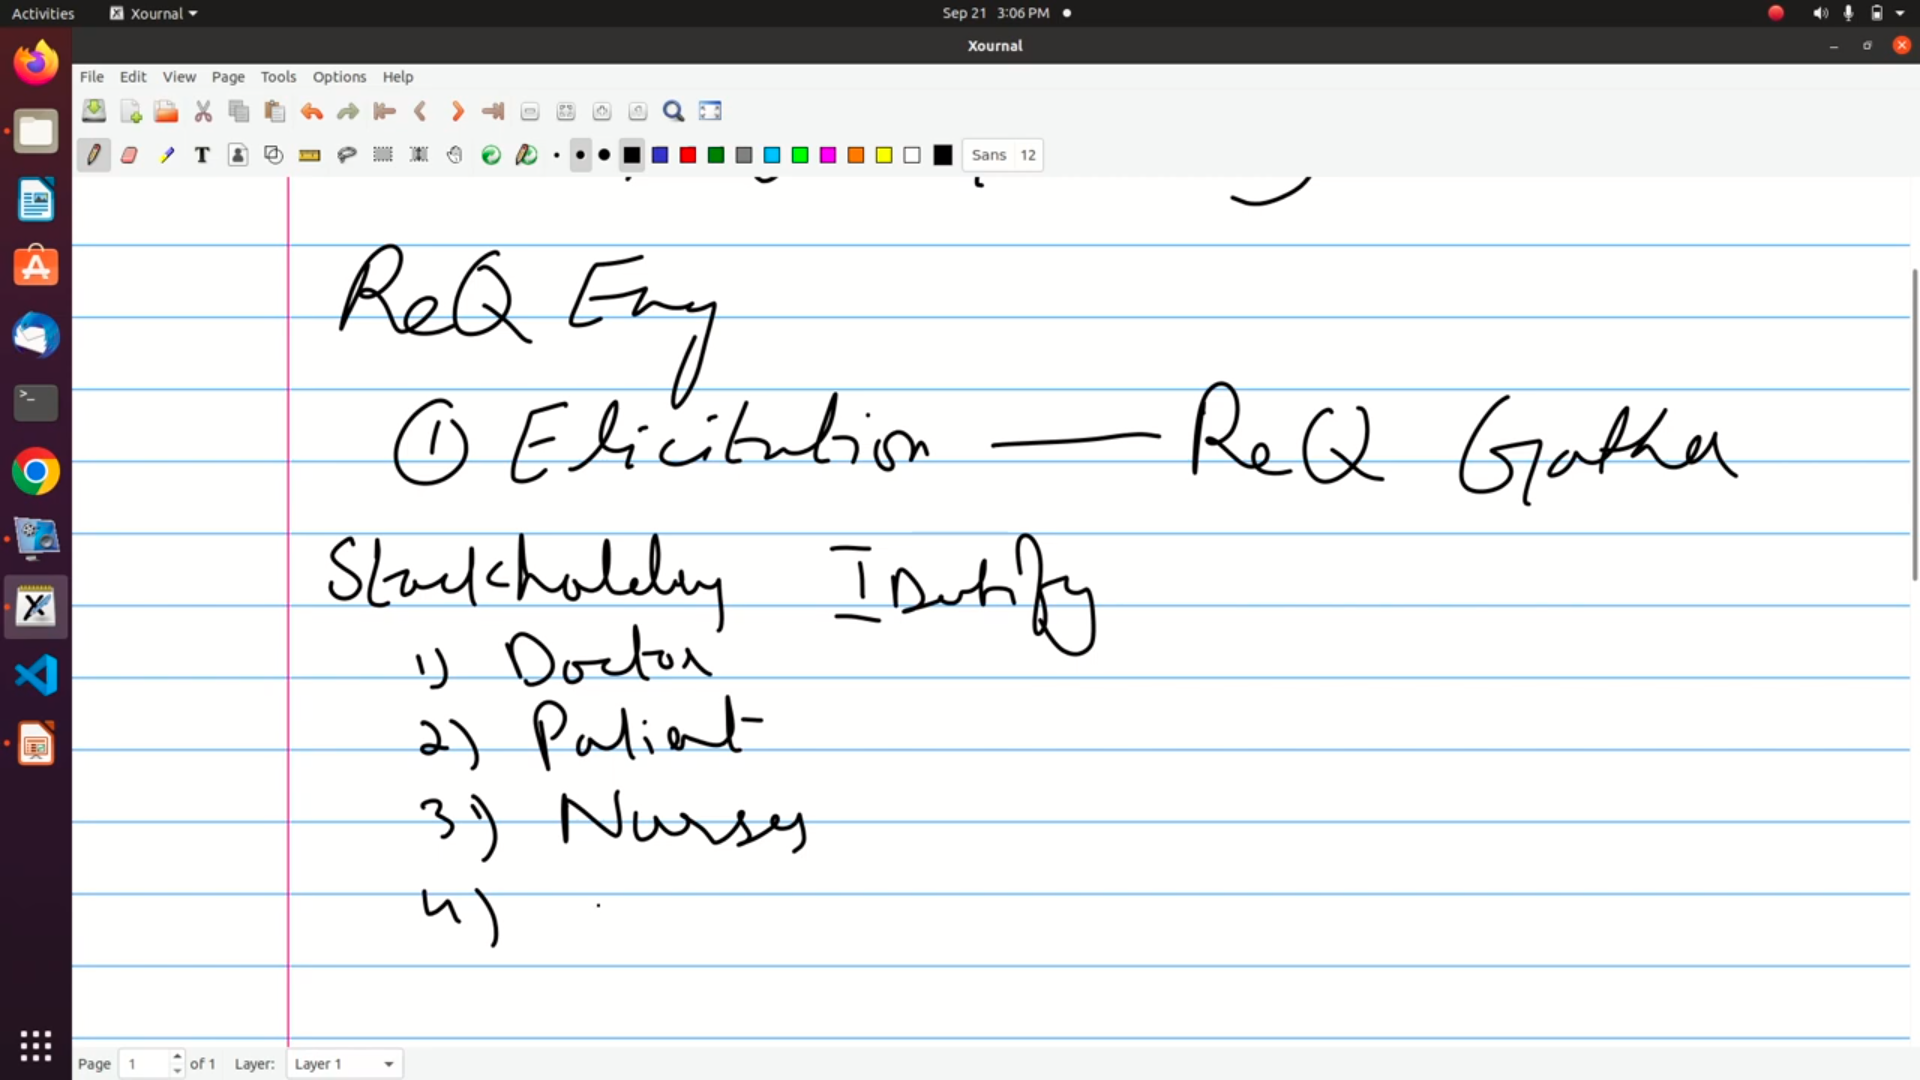 Activities Xournal Sep 21 3:06 PM
Xournal
File Edit View Page Tools Options Help
T Sans 12
ReQ Eng
① Elicitation — ReQ Gather
Stackholders IDentify
1) Doctor
2) Patient
3) Nurses
4)
Page 1 of 1 Layer: Layer 1